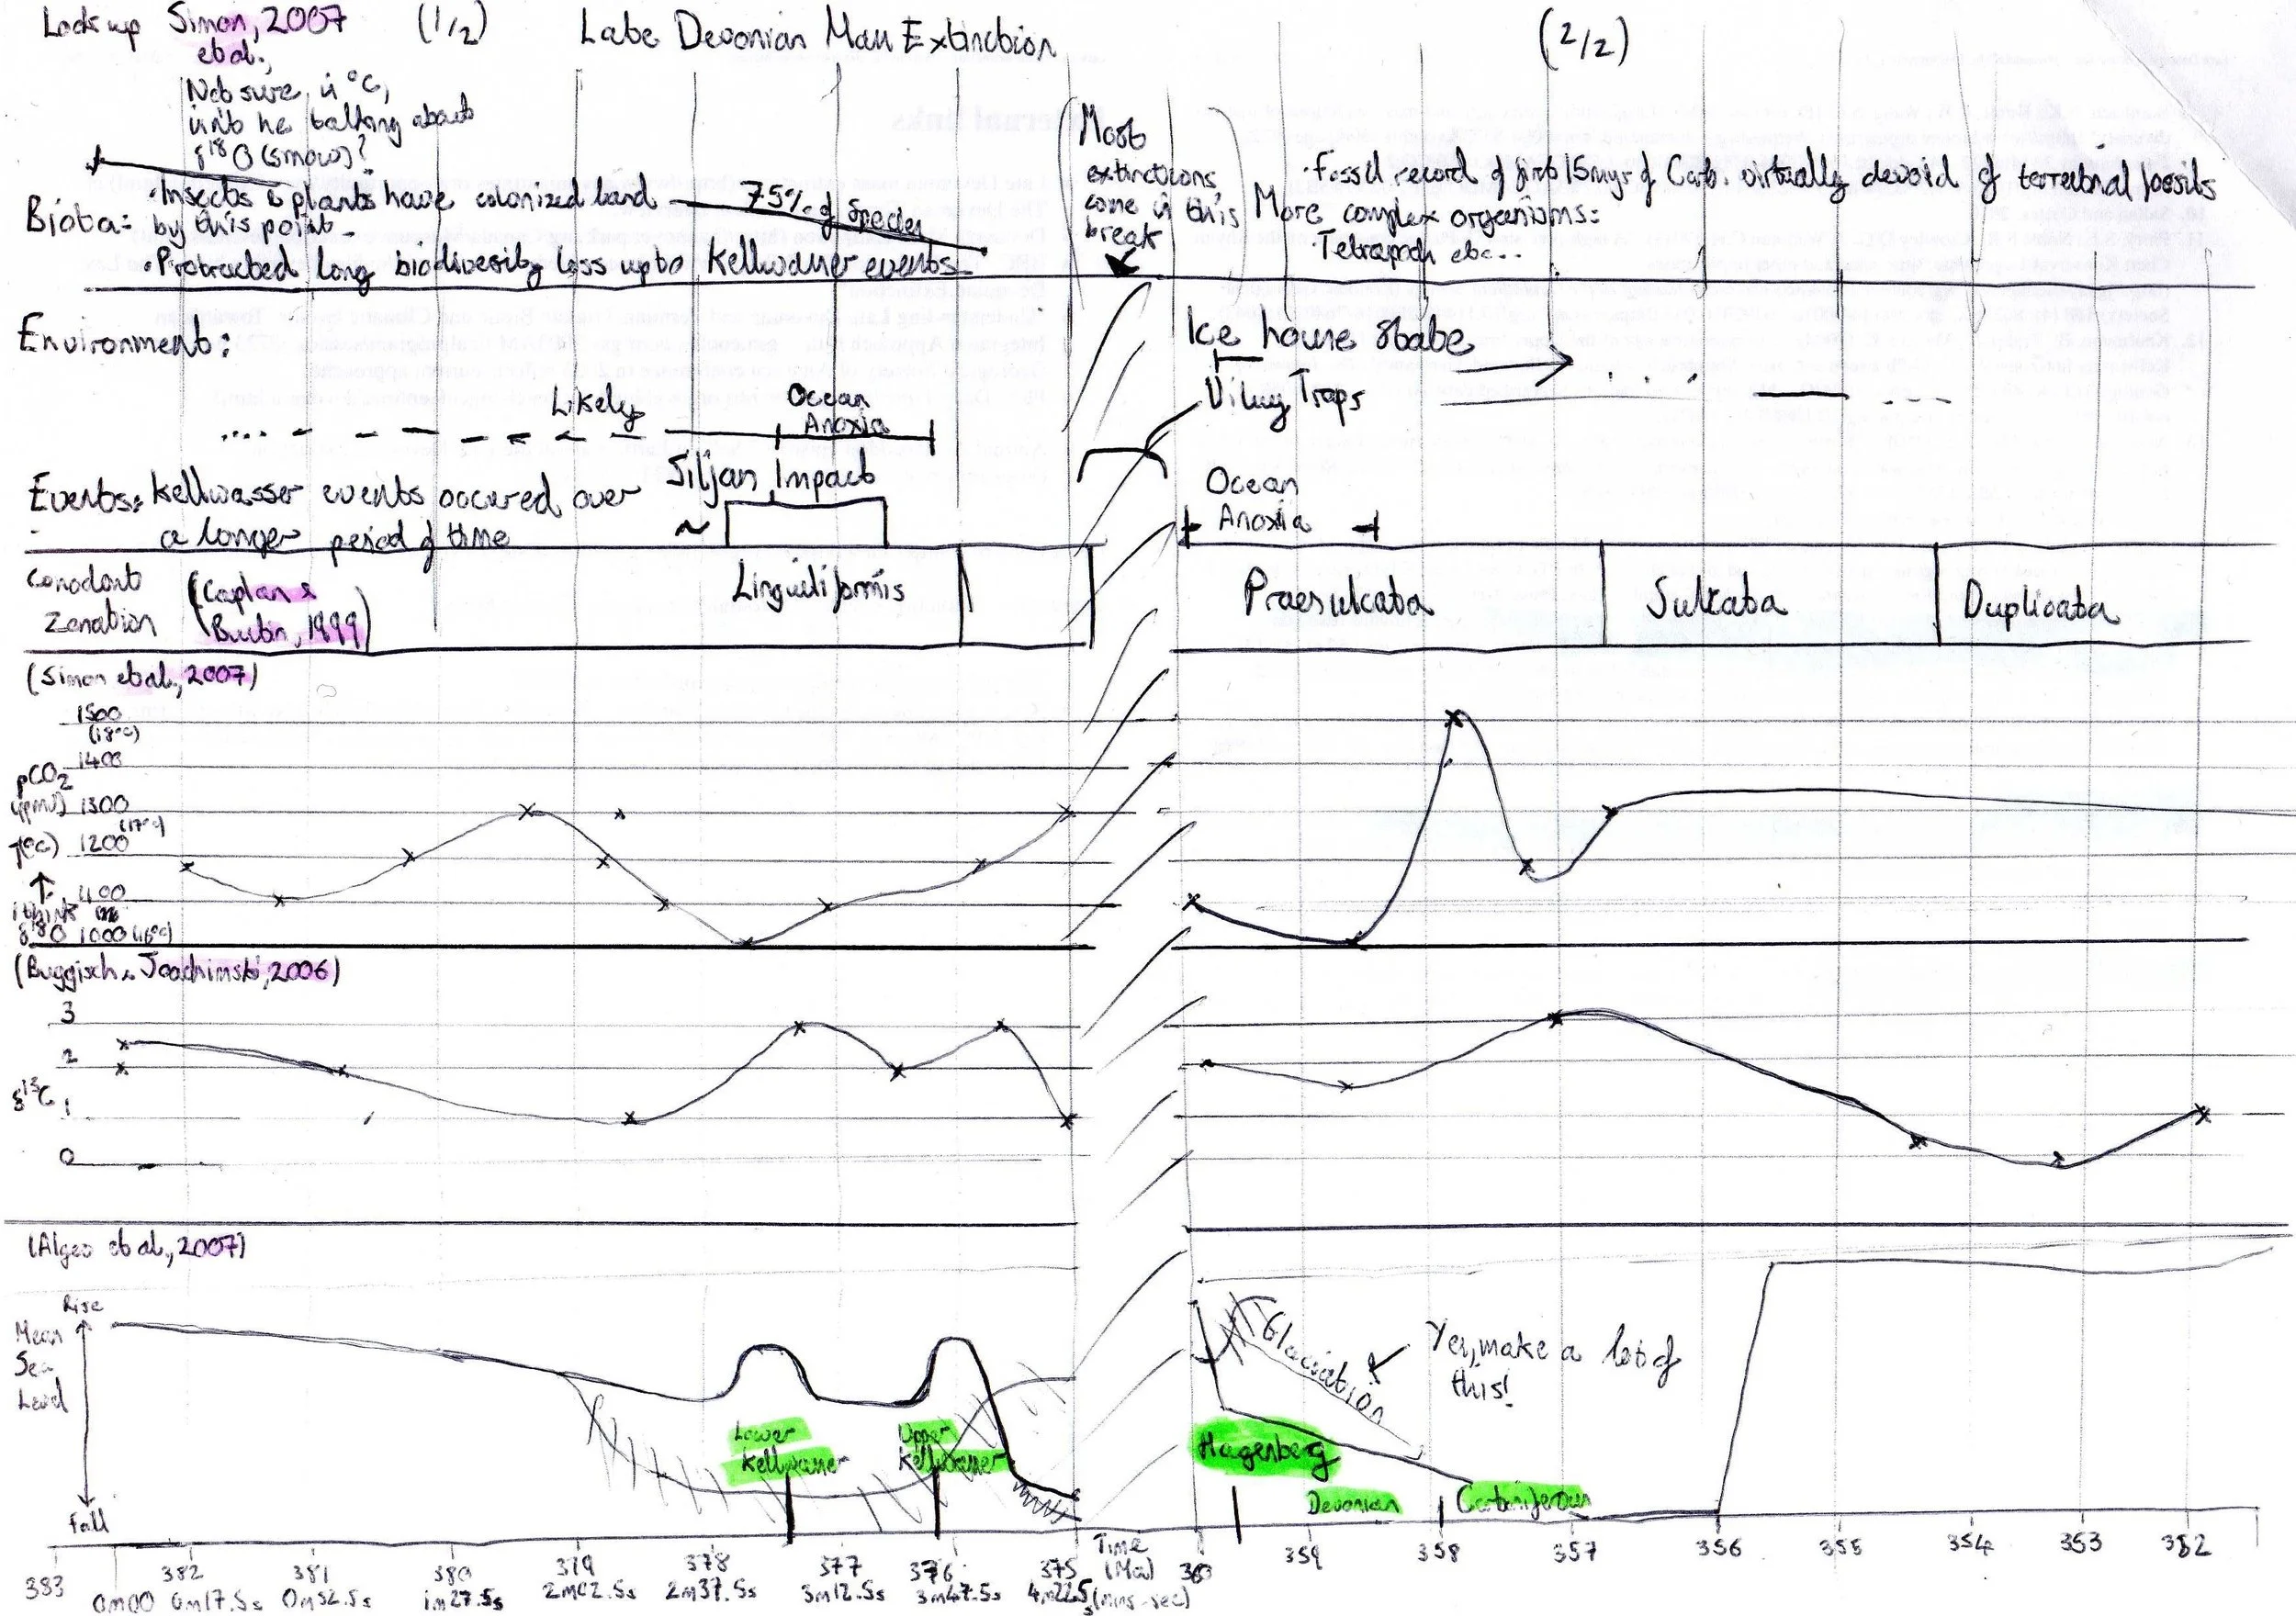 Look up Simon, 2007
et al.,
(1/2)
Late Devonian Mass Extinction
(2/2)
Not sure, is °C,
isn't he talking about
δ18O (smow)?
Biota:
· Insects & plants have colonized land
by this point.
· Protracted long biodiversity loss upto Kellwasser events
75% of species
Most
extinctions
come in this
break
· Fossil record of first 15myr of Carb. virtually devoid of terrestrial fossils
More complex organisms:
Tetrapods etc...
Environment:
Likely
Ocean
Anoxia
Ice house state
Viluy Traps
Events: Kellwasser events occured over
a longer period of time
Siljan Impact
~
Ocean
Anoxia
Conodont
Zonation
(Caplan &
Bustin, 1999)
Linguiliformis
Praesulcata
Sulcata
Duplicata
(Simon et al., 2007)
1500
(18°C)
1400
pCO2
(ppmv) 1300
(17°C)
T(°C) 1200
↑ 1100
i think
δ18O 1000 (16°C)
(Buggisch & Joachimski, 2006)
3
2
δ13C
1
0
(Algeo et al., 2007)
Rise
Mean
Sea
Level
Fall
Lower
Kellwasser
Upper
Kellwasser
Glaciation
Yes, make a lot of
this!
Hagenberg
Devonian
Carboniferous
383 382 381 380 379 378 377 376 375
Time
(Ma)
360 359 358 357 356 355 354 353 352
0m00 0m17.5s 0m52.5s 1m27.5s 2m02.5s 2m37.5s 3m12.5s 3m47.5s 4m22.5s (mins-sec)